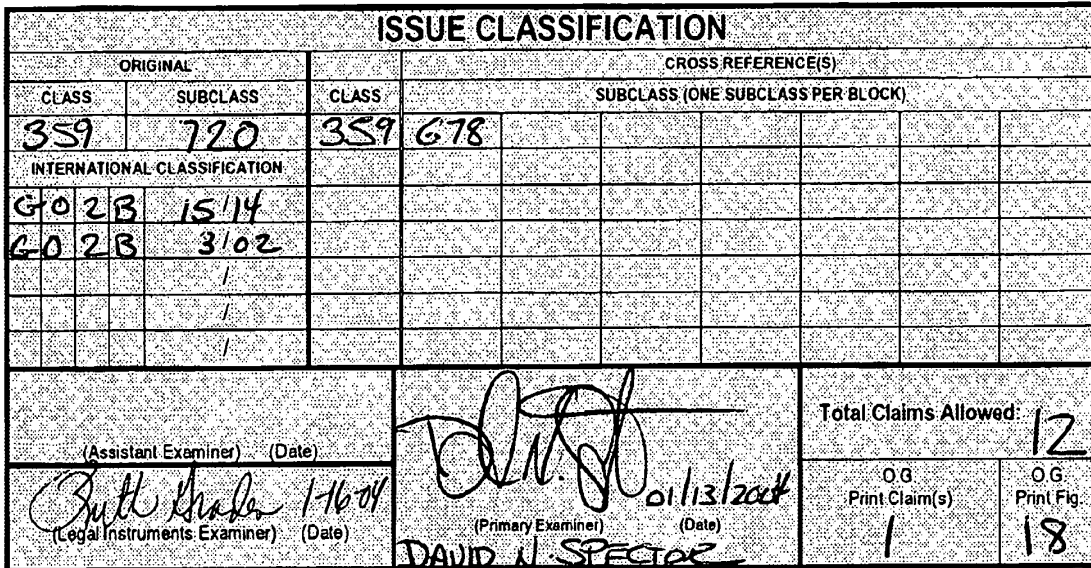 ISSUE CLASSIFICATION
ORIGINAL CROSS REFERENCE(S)
CLASS SUBCLASS CLASS SUBCLASS (ONE SUBCLASS PER BLOCK)
359 720 359 678
INTERNATIONAL CLASSIFICATION
G 0 2 B 15/14
G 0 2 B 3/02
/
/
/
(Assistant Examiner) (Date)
Ruth 1-16-04
(Legal Instruments Examiner) (Date)
01/13/2004
(Primary Examiner) (Date)
DAVID N. SPECTOR
Total Claims Allowed: 12
O.G. Print Claim(s) O.G. Print Fig.
1 18